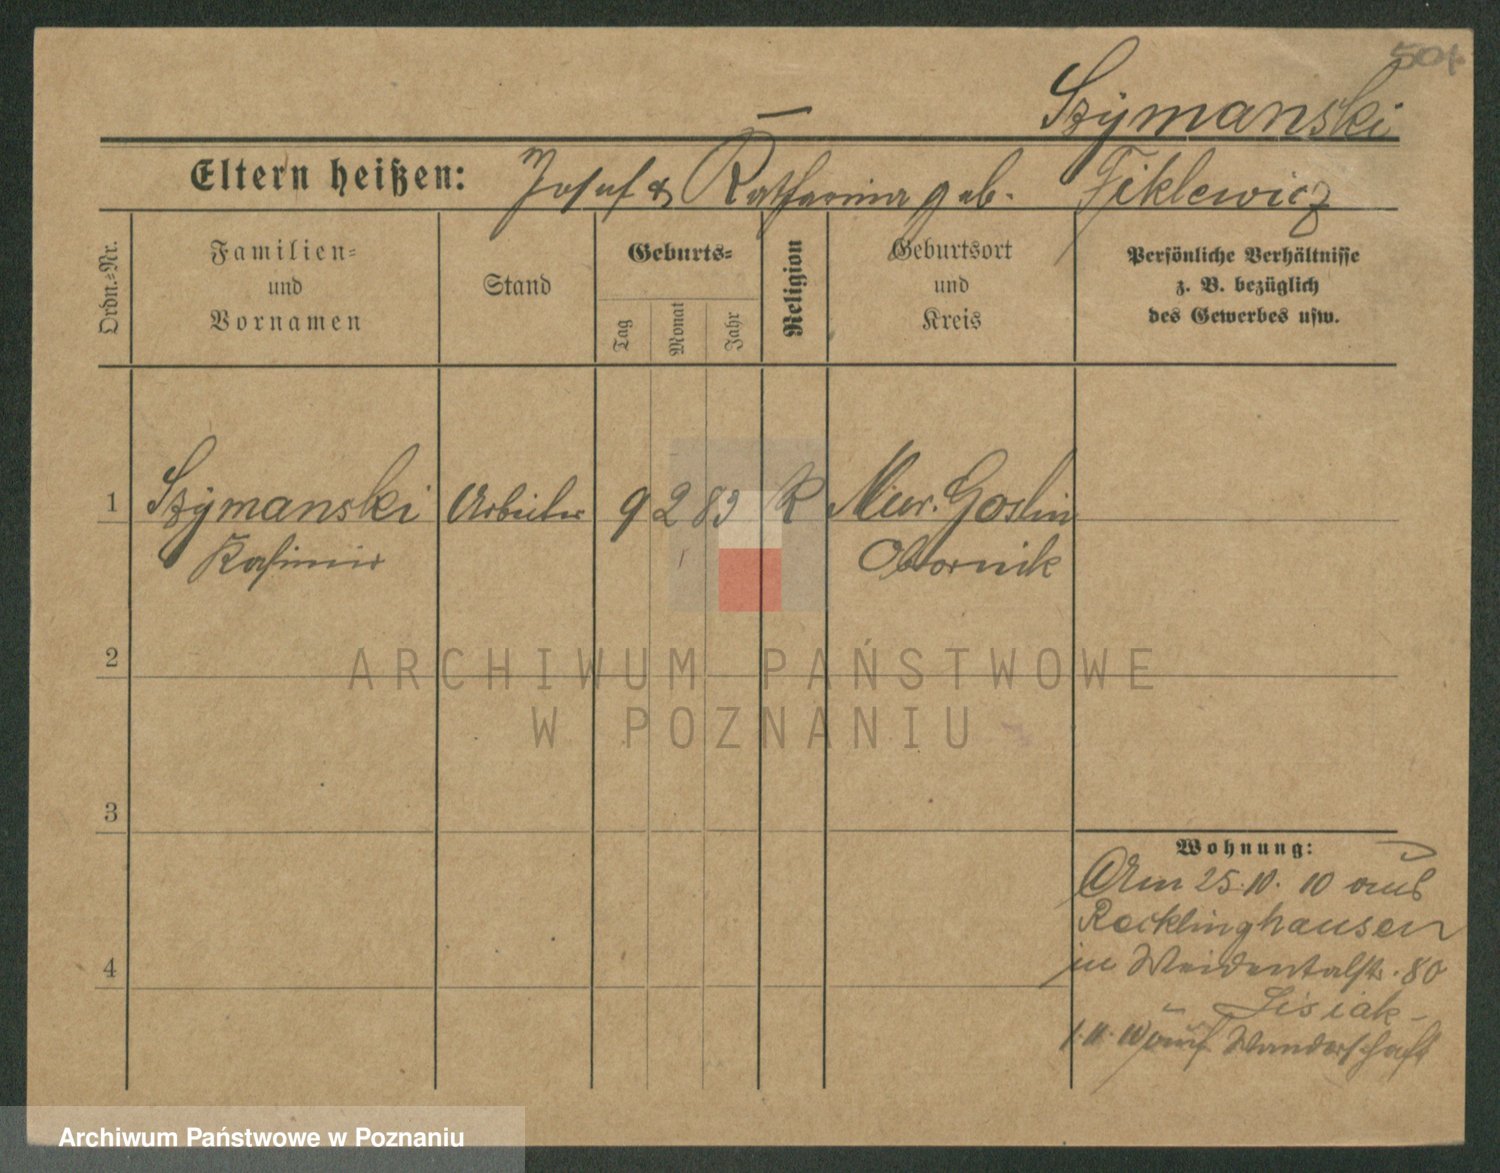 504
Szymanski
Eltern heißen: Josef & Katharina geb. Fiklewicz
Ordn.-Nr.
Familien-
und
Vornamen
Stand
Geburts-
Tag
Monat
Jahr
Religion
Geburtsort
und
Kreis
Persönliche Verhältnisse
z. B. bezüglich
des Gewerbes usw.
1 Szymanski Arbeiter 9 2 83 K Mur. Goslin
Kasimir Obornik
2
ARCHIWUM PAŃSTWOWE
W POZNANIU
3
Wohnung:
Am 25.10.10 aus
Recklinghausen
4 in Weidentalstr. 80
Lisiak
1.11.10 auf Wanderschaft
Archiwum Państwowe w Poznaniu